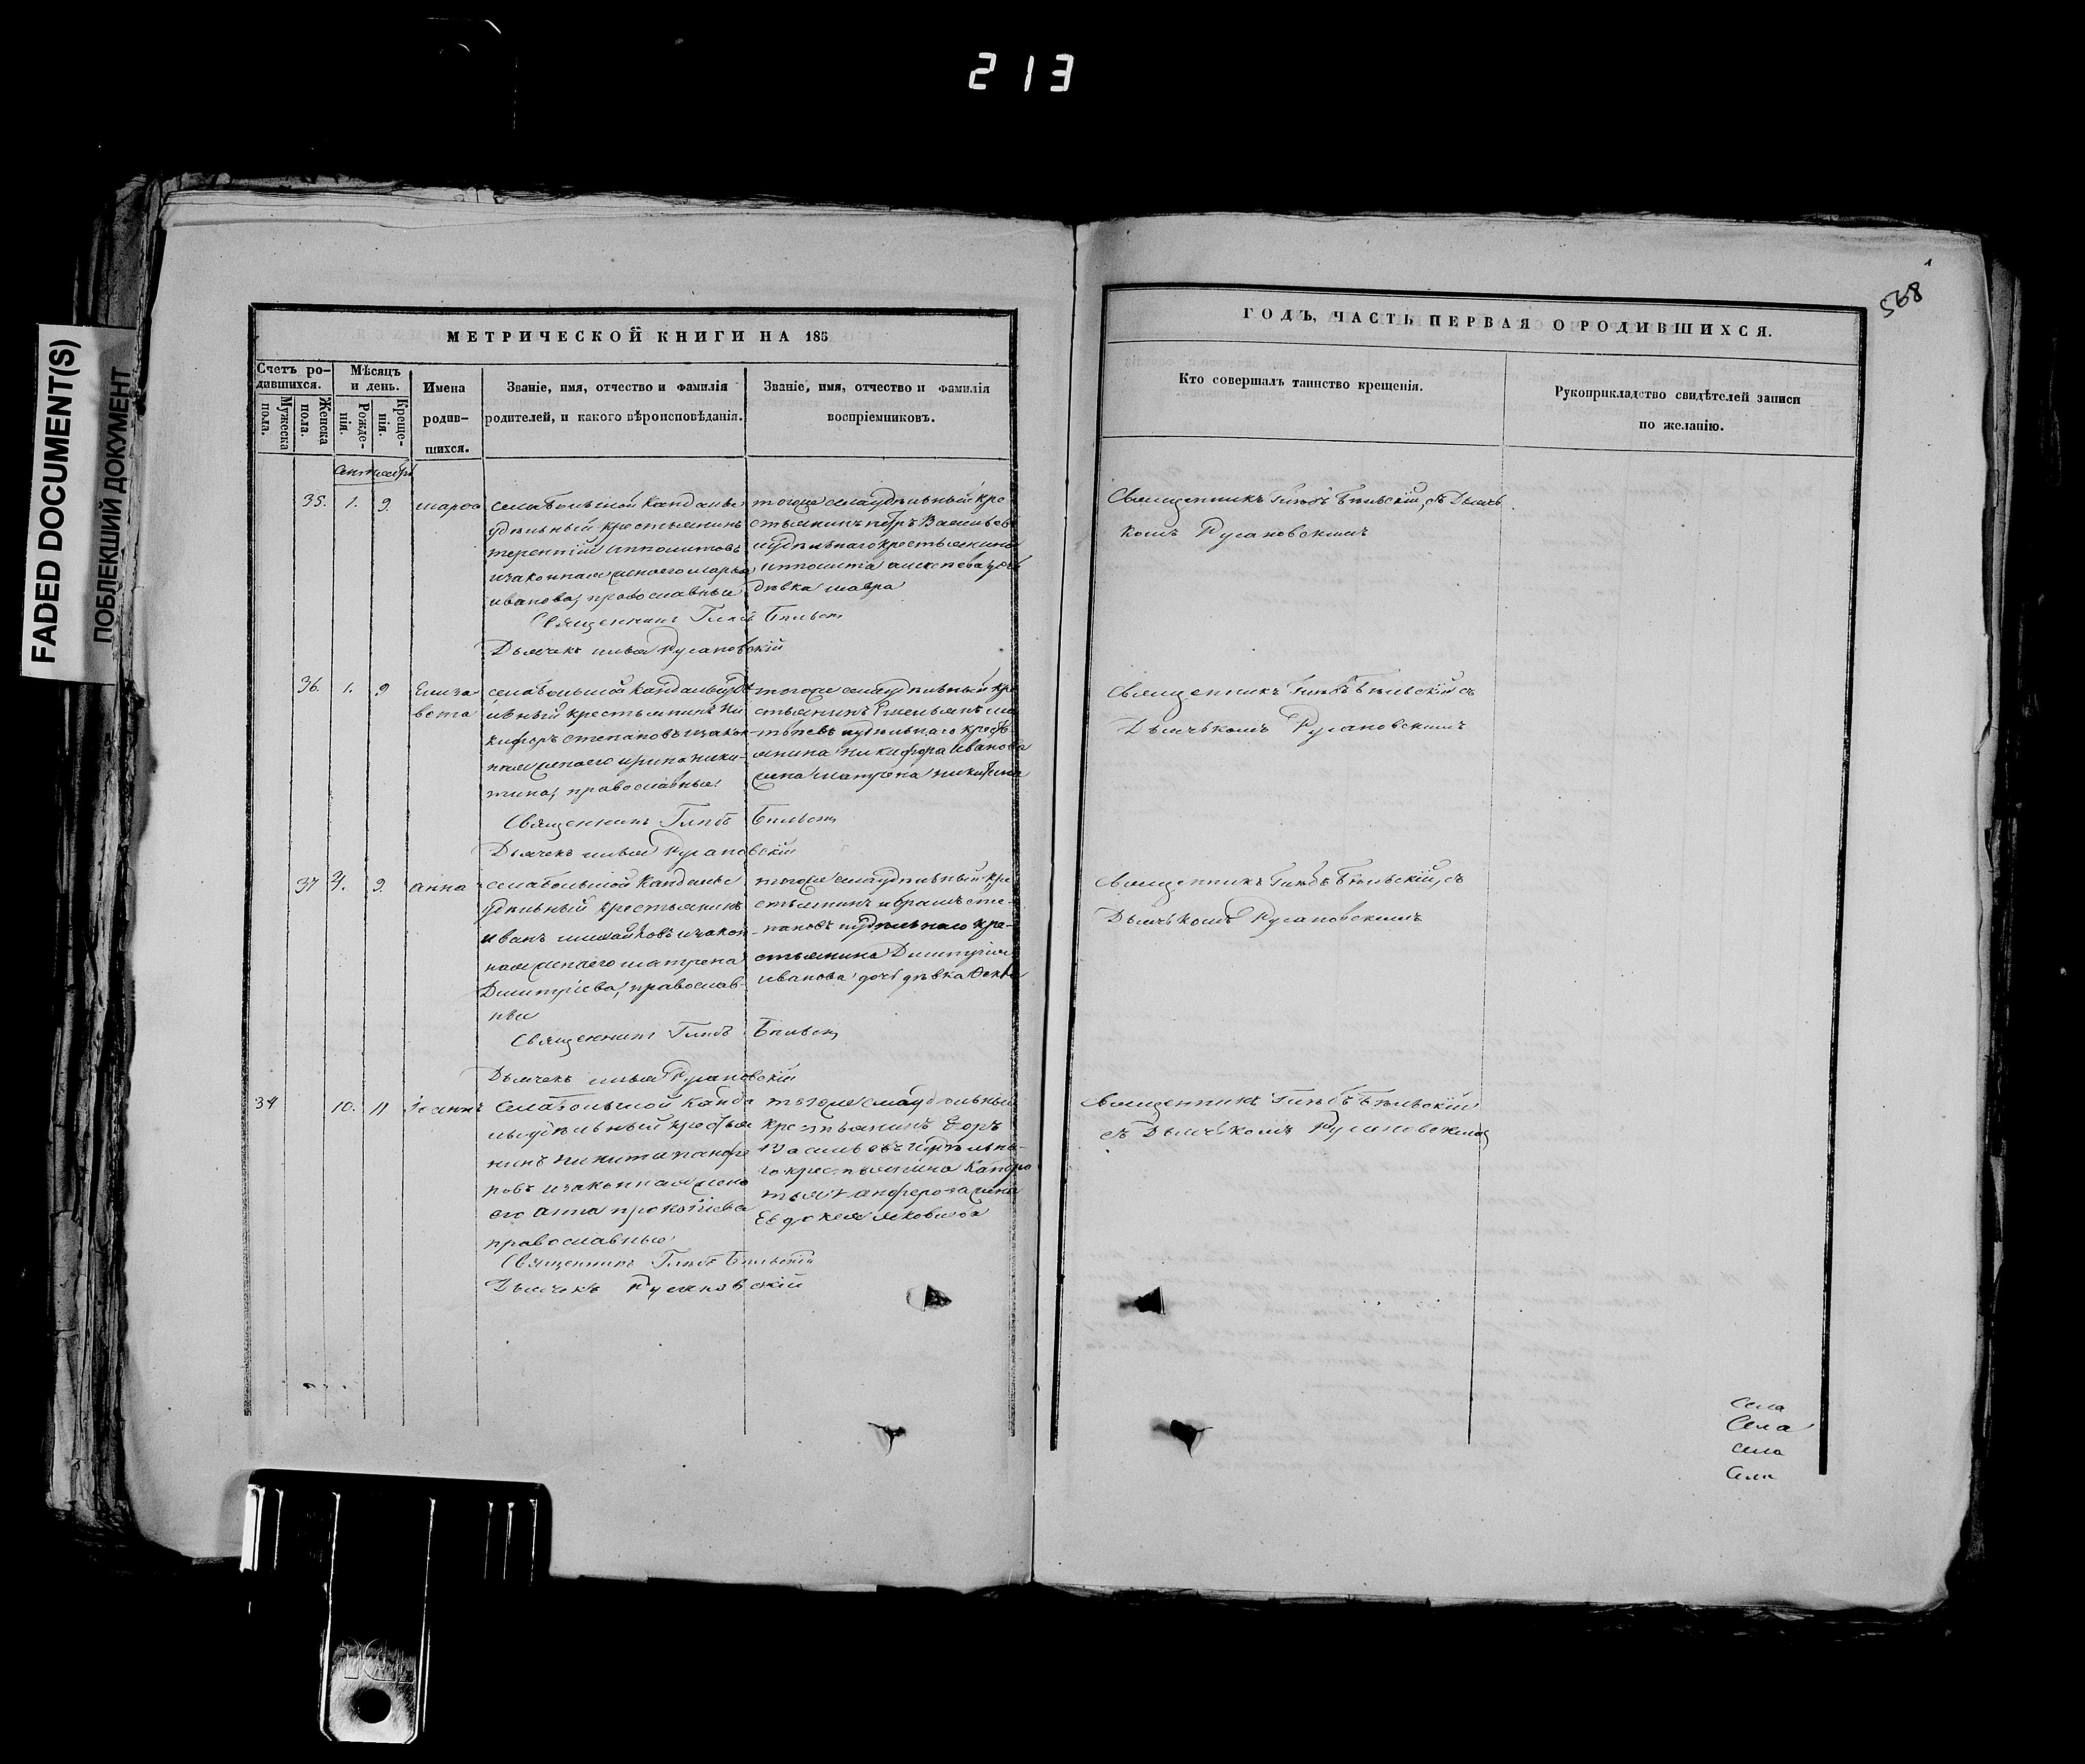 213
FADED DOCUMENT(S)
ПОБЛЕКШИЙ ДОКУМЕНТ
568
МЕТРИЧЕСКОЙ КНИГИ НА 185
Счетъ ро-
дившихся.
Мужеска
пола.
Женска
пола.
Мѣсяцъ
и день.
Рожде-
нія.
Креще-
нія.
Имена
родив-
шихся.
Званіе, имя, отчество и фамилія
родителей, и какого вѣроисповѣданія.
Званіе, имя, отчество и фамилія
воспріемниковъ.
Сентябрь
35. 1. 9. марфа
села большой Кандалы
удѣльный крестьянинъ
терентій ипполитовъ
изаконная жена его марья
иванова, православные
тогоже села удѣльный кре
стьянинъ петръ Васильевъ
иудѣльнаго крестьянина
ипполита алексеева дочь
дѣвка мавра
Священникъ Глѣбъ Бѣльскій
Дьячекъ илья Русановскій
36. 1. 9 Елиза
вета
села большой Кандалы удѣ
льный крестьянинъ Ни
кифоръ степановъ изакон
ная жена его ирина ники-
тина, православные
тогоже села удѣльный кре
стьянинъ Емельянъ ма
тѣевъ иудѣльнаго кресть
янина никифора иванова
жена матрена никитина
Священникъ Глѣбъ Бѣльскій
Дьячекъ илья Русановскій
37 4. 9. анна
села большой Кандалы
удѣльный крестьянинъ
иванъ михайловъ изакон
ная жена его матрена
Димитріева, православ-
ные
тогоже села удѣльный кре
стьянинъ аврамъ сте-
пановъ иудѣльнаго кре-
стьянина Димитрія
иванова дочь дѣвка
Священникъ Глѣбъ Бѣльскій
Дьячекъ илья Русановскій
34 10. 11 Іоаннъ
села большой Канда
лы удѣльный крестья
нинъ никита
новъ изаконная жена
его анна прокопіева
православные
тогоже села удѣльный
крестьянинъ Егоръ
Васильевъ иудѣльна-
го крестьянина
жена
Евдокея яковлева
Священникъ Глѣбъ Бѣльскій
Дьячекъ Русановскій
ГОДЪ, ЧАСТЬ ПЕРВАЯ О РОДИВШИХСЯ.
Кто совершалъ таинство крещенія.
Рукоприкладство свидѣтелей записи
по желанію.
Священникъ Глѣбъ Бѣльскій, съ Дьяч
комъ Русановскимъ
Священникъ Глѣбъ Бѣльскій съ
Дьячькомъ Русановскимъ
Священникъ Глѣбъ Бѣльскій, съ
Дьячькомъ Русановскимъ
Священникъ Глѣбъ Бѣльскій
съ Дьячькомъ Русановскимъ
Села
Села
села
Села